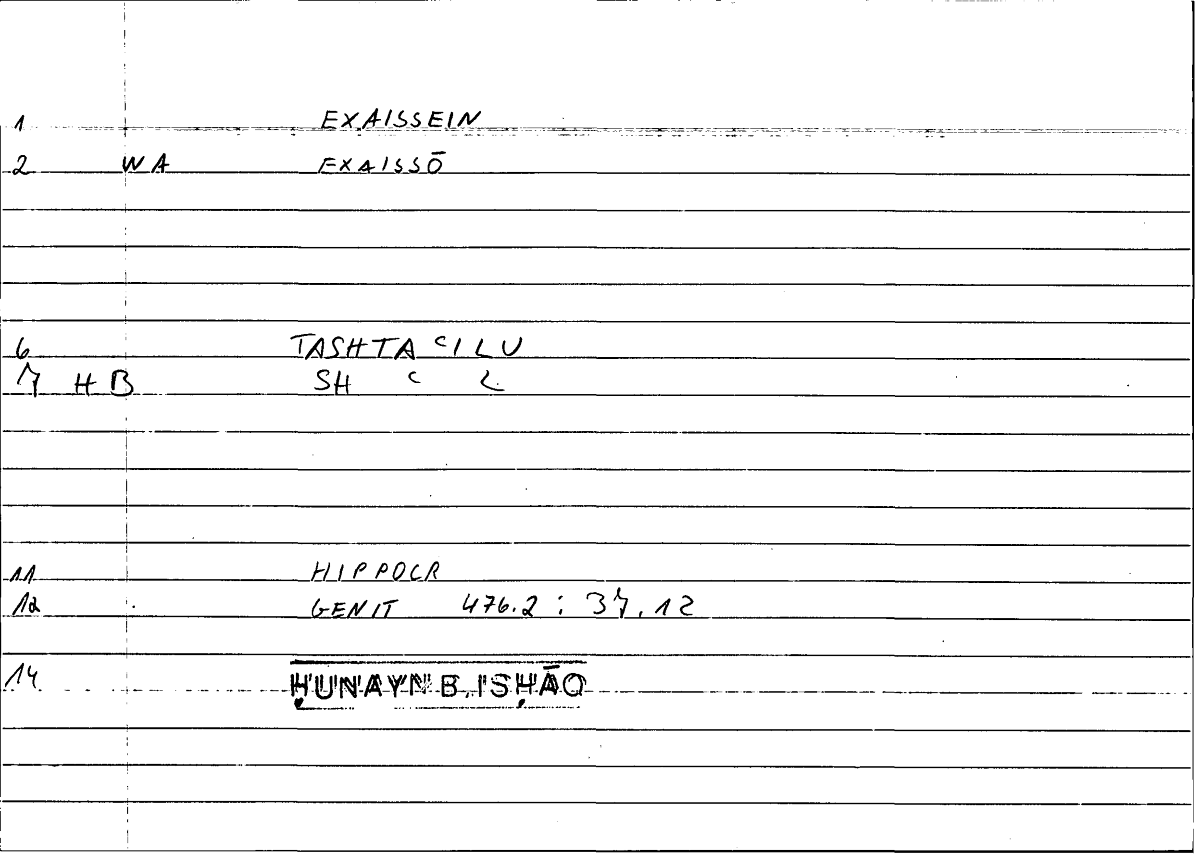 1 EXAISSEIN
2 WA EXAISSŌ
6 TASHTA ᶜILU
7 HB SH ᶜ L
11 HIPPOCR
12 GENIT 476.2 : 37.12
14 ḤUNAYN B. ISḤĀQ